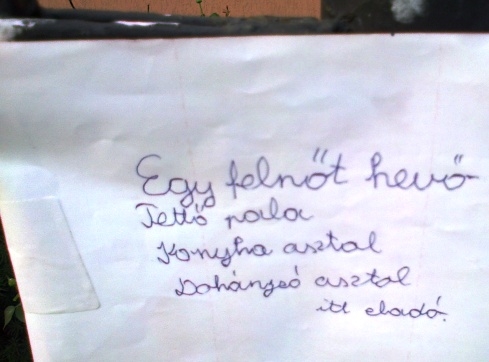 Egy felnőt hevő
Tettő pala
Konyha asztal
Dohányzó asztal
itt eladó.